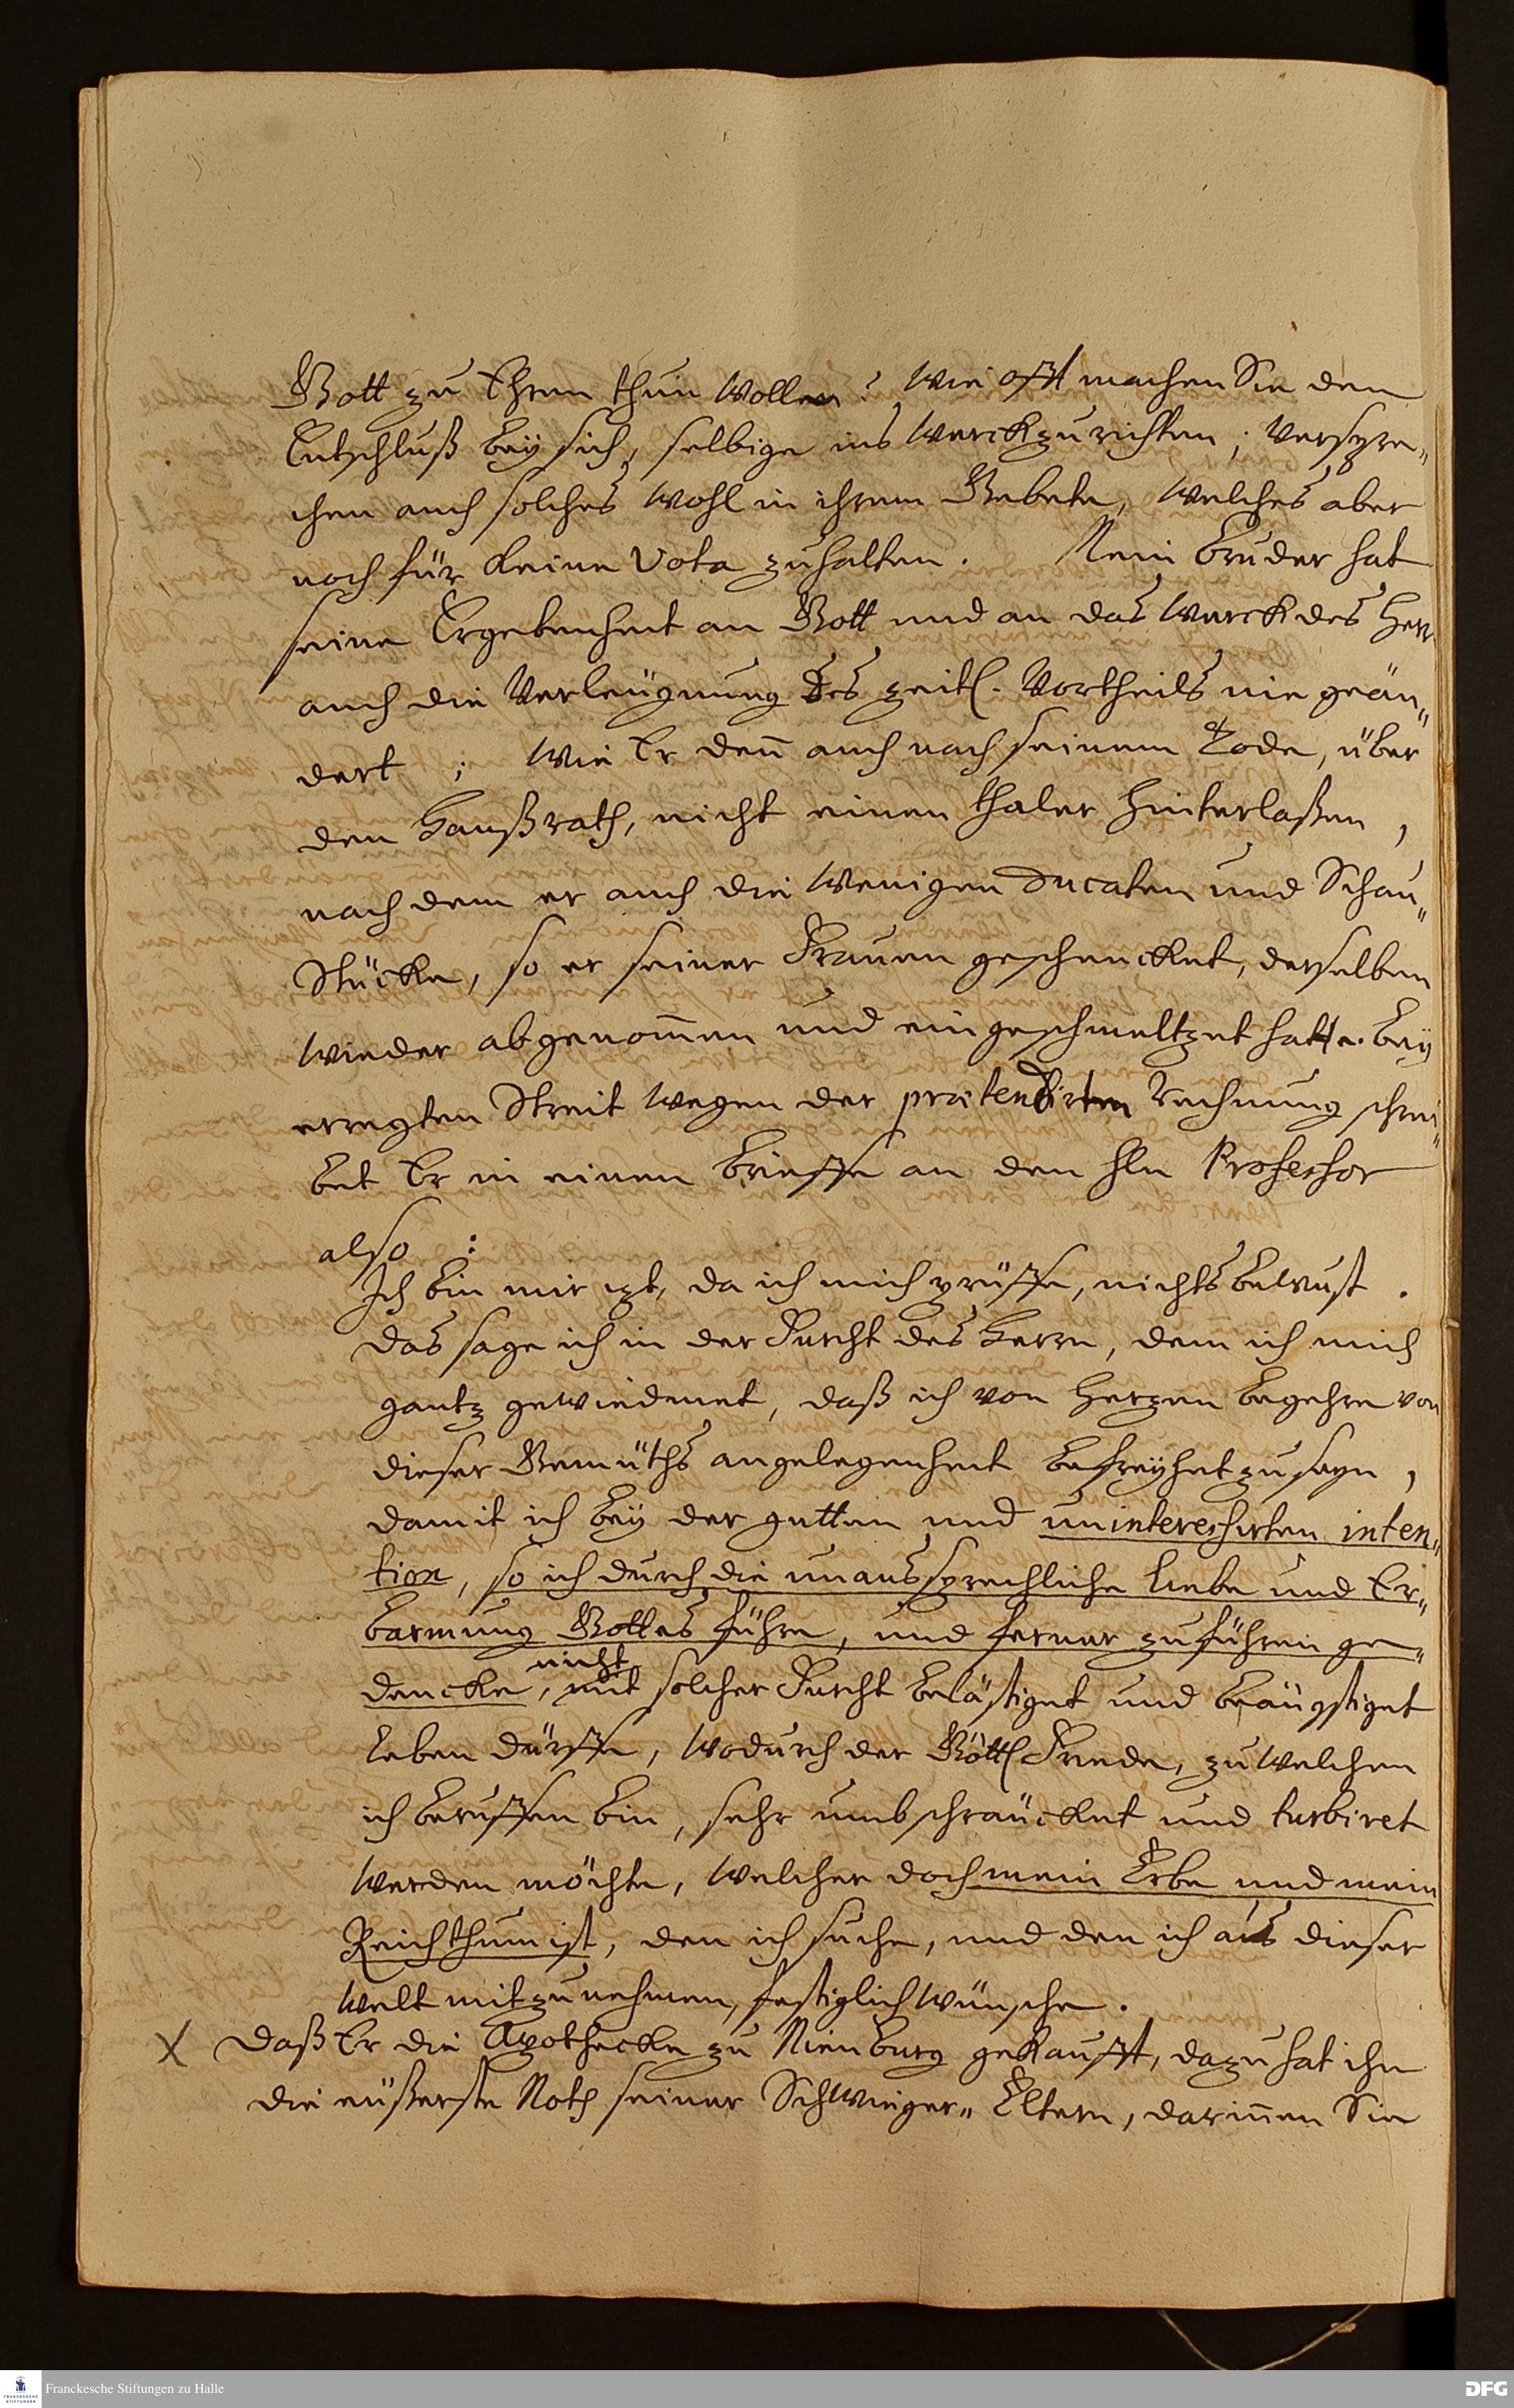 Gott zu Ehren thun wollen? Wie offt machen Sie den
Entschluß bey sich, selbige ins Werck zu richten; verspre„
chen auch solches wohl in ihrem Gebete, welches aber
noch für keine Vota zuhalten. Mein Bruder hat
seine Ergebenheit an Gott und an das Werck des Herr
auch die Verleugnung des zeitl. Vortheils nie geän„
dert; Wie Er deñ auch nach seinem Tode, über
den Haußrath, nicht einen thaler hinterlaßen,
nach dem er auch die wenigen Ducaten und Schau„
Stücke, so er seiner Frauen geschencket, derselben
wieder abgenom̃en und eingeschmeltzet hatte. Bey
erregten Streit wegen der prætendirten Rechnung schrei„
bet Er in einen Brieffe an den Hln Professor
also:
Ich bin mir itzt, da ich mich prüffe, nichts bewust.
das sage ich in der Furcht des Herrn, dem ich mich
gantz gewiedmet, daß ich von Herzen begehre von
dieser Gemüths angelegenheit befreyhet zu seyn,
damit ich bey der gutten und uninteressirten inten„
tion, so ich durch die unaussprechliche Liebe und Er„
barmung Gottes führe, und ferner zu führen ge„
dencke, nicht mit solcher Furcht belästiget und beängstiget
leben dürffe, wodurch der Göttl Friede, zu welchen
ich beruffen bin, sehr umbschräncket und turbiret
werden möchte, welcher doch mein Erbe und mein
Reichthum ist, den ich suche, und den ich aus dieser
Welt mitzunehmen, festiglich wünsche.
X daß Er die Apothecke zu Nienburg gekaufft, dazu hat ihn
die eüßerste Noth seiner Schwieger„ Eltern, dariñen Sie
Franckesche Stiftungen zu Halle
FRANCKESCHE STIFTUNGEN
DFG